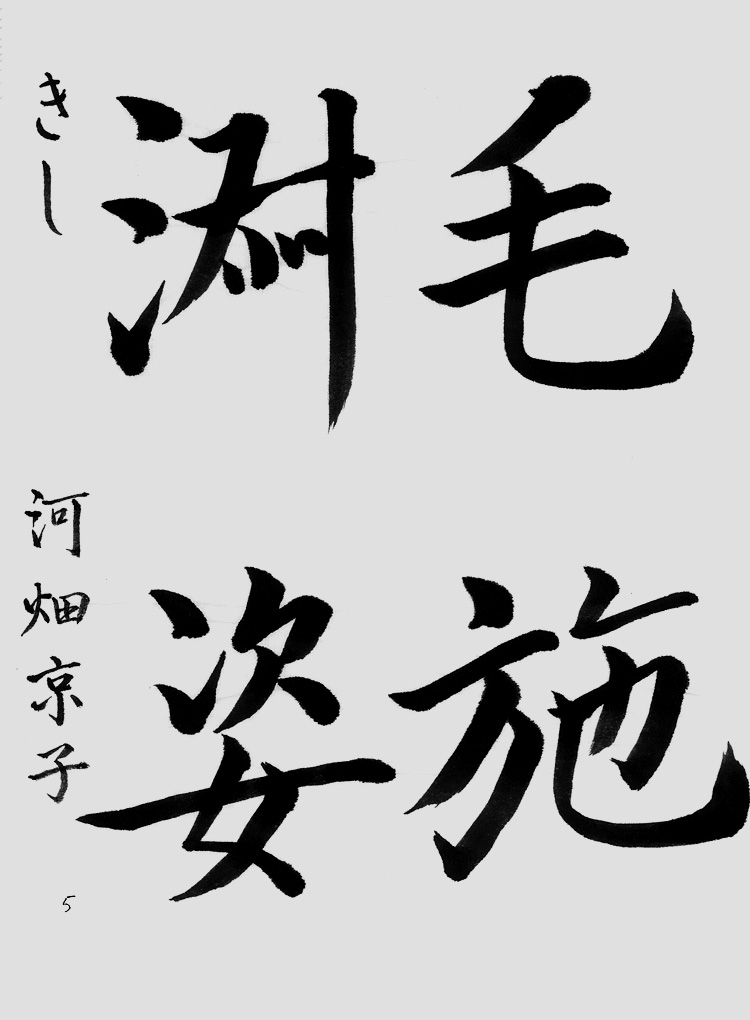 毛施
淑姿
きし 河畑京子
5